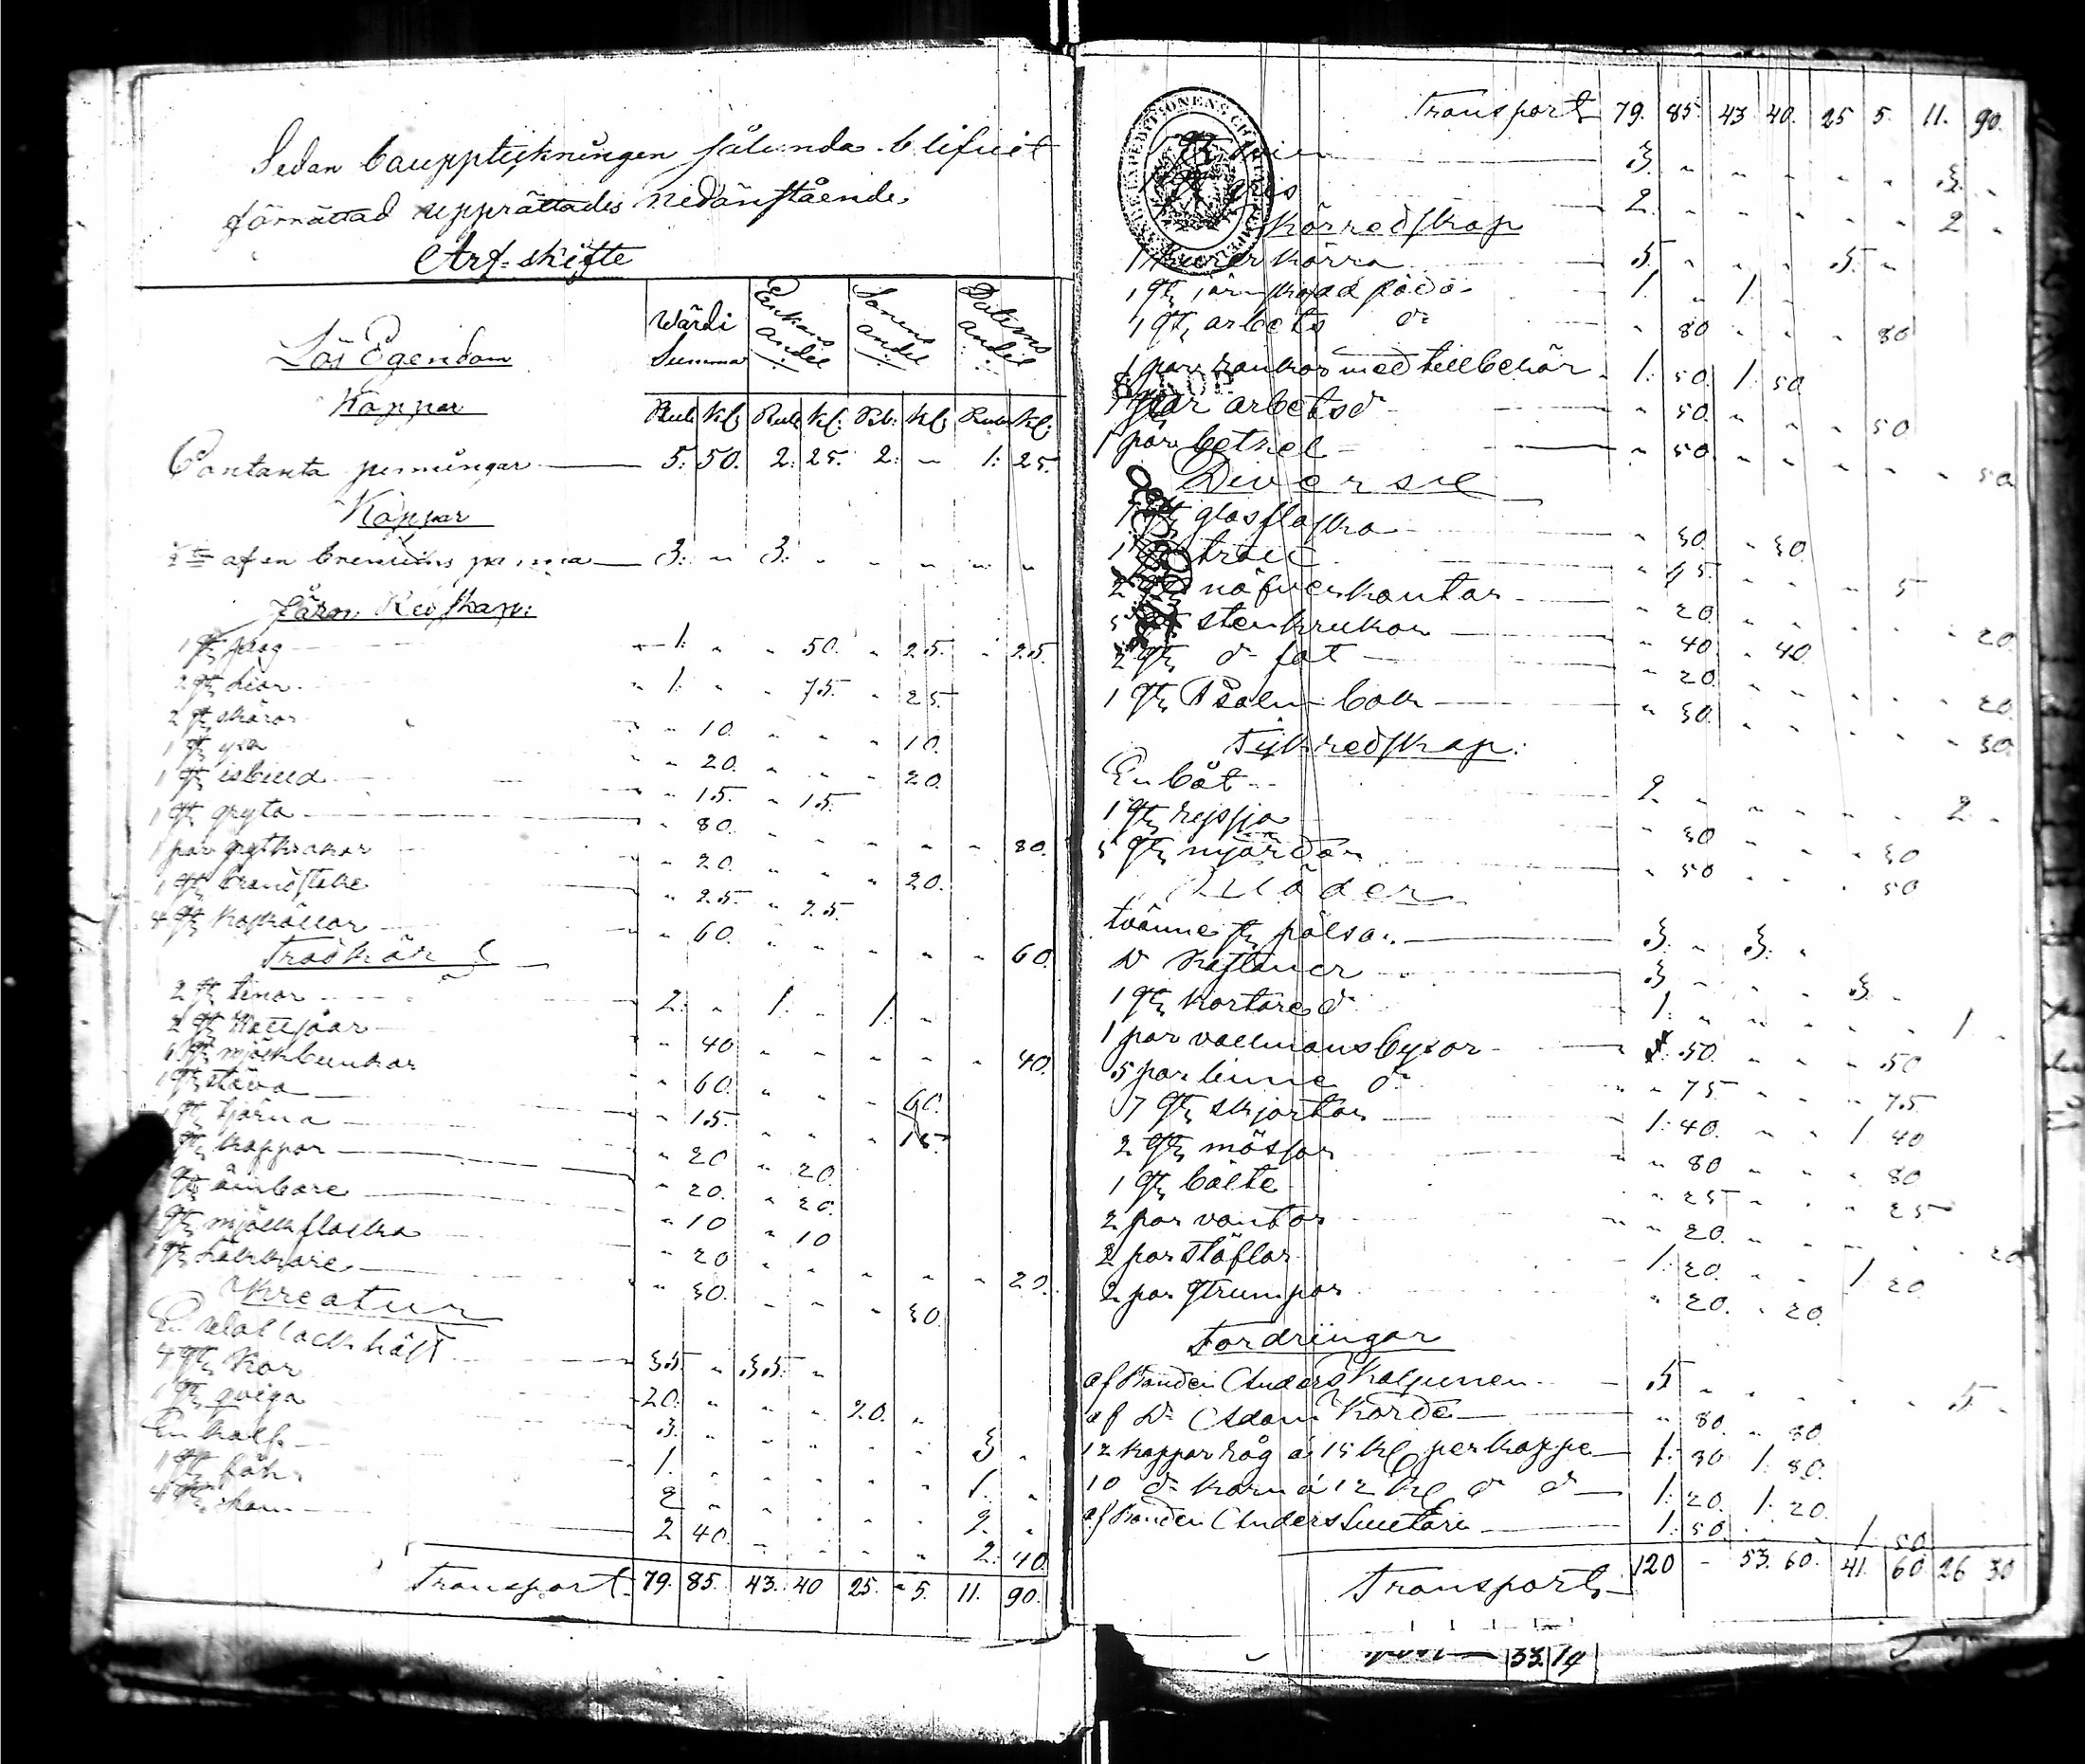 Sedan bouppteckningen sålunda blifvit
förrättad upprättades nedanstående
Arf-skifte
Lös Egendom
Wärdi Summa
Enkans andel
Sonens andel
Doterns andel
Koppar
Rub Kp: Rub Kp: Rb: Kp: Rub Kp:
Contanta penningar 5. 50. 2: 25. 2: " 1: 25.
Koppar
1/2 af en bränvins panna 3: " 3: " " " " "
Järn Redskap:
1 st plog " 1. " " 50. " 25. " 25.
2 st liar " 1. " " 75. " 25
2 st skäror " " 10. " " " 10.
1 st yxa " " 20. " " " 20.
1 st isbill " " 15. " 15.
1 st gryta " 80. " " " " " 80.
1 par grytkrokar " 20. " " " 20.
1 st brandstake " 25. " 25.
4 st koskällor " 60. " " " " " 60.
Trädkäril
2 st tinor 2. " 1. " 1. "
2 st " 40 " " " " " 40.
6 st mjölkbunkar " 60. " " " 60.
1 st stäva " 15. " " " 15
1 st kjärna " 20 " 20.
st kappor " 20. " 20.
st ämbare " 10 " 10
1 st mjölkflaska " 20 " " " " " 20.
1 st " 30. " " " 30.
Kreatur
En valack häst 35 " 35. "
4 st Kor 20. " " " 20. "
1 st qviga 3. " " " " " 3 "
En kalf 1. " " " " " 1. "
1 st får 2 " " " " " 2. "
4 st 2 40. " " " " 2. 40.
Transport 79. 85. 43. 40 25. " 5. 11. 90.
Transport 79. 85. 43 40. 25 5. 11. 90.
3. " " " " " 3. "
gris 2. " " " " " 2 "
Körredskap
1 kärra 5. " " " 5. "
1 st järnskodd släde 1. " 1. "
1 st arbets do " 80 " " " 80
1 par rankor med tillbehör 1. 50. 1. 50.
1 par arbets do " 50. " " " 50
1 par betsel " 50 " " " " " 50
Diverse
1 st glasflaska " 30. " 30.
1 st " 15. " " " 5
2 st näfverkontar " 20. " " " " " 20.
5 st stenkrukor " 40. " 40.
2 st do fat " 20. " " " " " 20.
1 st Psalmbok " 30. " " " " " 30.
Fiskredskap:
En båt 2. " " " " " 2. "
1 st ryssja " 30 " " " 30
5 st mjärdar " 50 " " " 50
Kläder
tvänne st pälsar 3. " 3. "
Do Kaftaner 3 " " " 3. "
1 st kortare do 1. " " " " " 1 "
1 par vallmansbyxor " 50. " " " 50
5 par linne do " 75 " " " 75.
7 st skjortor 1. 40. " " 1 40
2 st mössor " 80 " " " 80
1 st bälte " 25 " " " 25
2 par vantar " 20. " " " " " 20
2 par stöflar 1. 20. " " 1. 20.
2 par strumpor " 20. " 20.
Fordringar
af Bonden Anders 5 " " " " " 5. "
af Do Adam " 80. " 80.
12 kappor råg á 15 kp per kappe 1: 80 1. 80.
10 do korn á 12 kp do do 1: 20. 1. 20.
af Bonden Anders 1. 50. " " 1. 50.
Transport 120 " 53. 60. 41. 60 26 30
33. 14